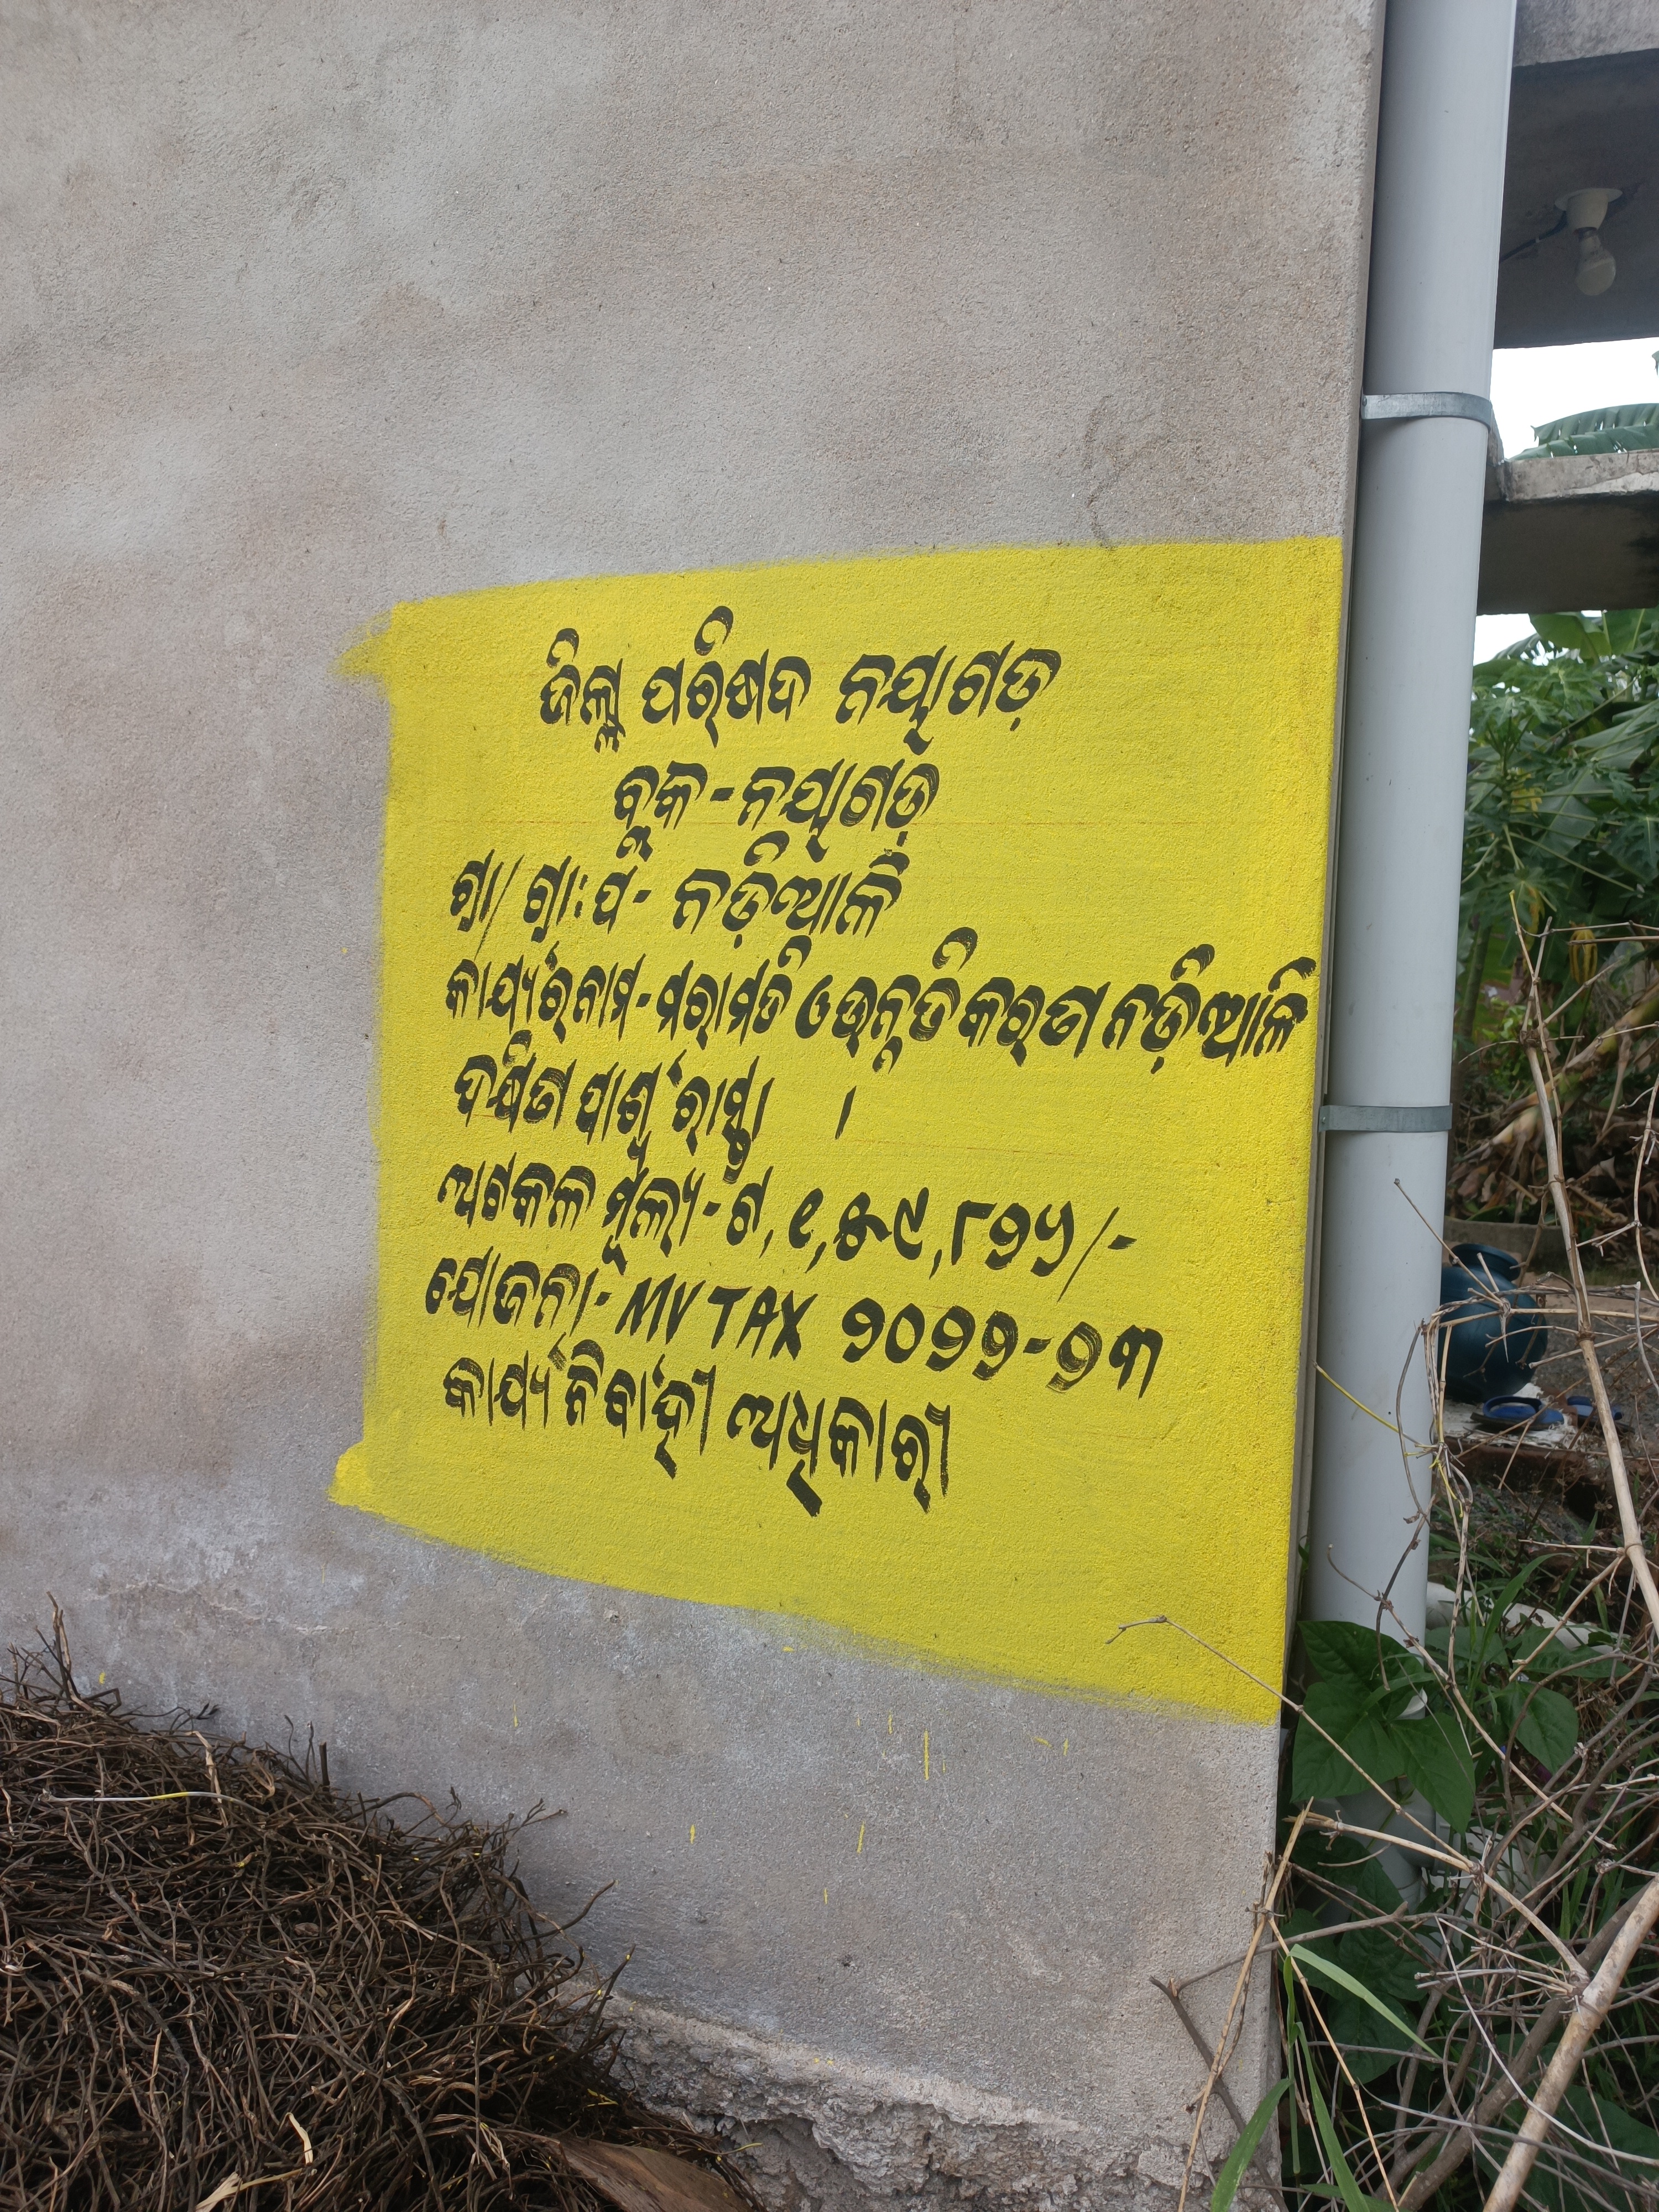 ଜିଲ୍ଲା ପରିଷଦ ନୟାଗଡ଼
ବ୍ଲକ - ନୟାଗଡ଼
ଗ୍ରା/ ଗ୍ରା:ପ - ନଡ଼ିଆଳି
କାର୍ଯ୍ୟର ନାମ - ମରାମତି ଓ ଉନ୍ନତିକରଣ ନଡ଼ିଆଳି
ଦକ୍ଷିଣ ପାର୍ଶ୍ଵ ରାସ୍ତା ।
ଅଟକଳ ମୂଲ୍ୟ - ଟ, ୧,୫୯,୮୨୨/-
ଯୋଜନା - MV TAX ୨୦୨୨-୨୩
କାର୍ଯ୍ୟ ନିର୍ବାହୀ ଅଧିକାରୀ